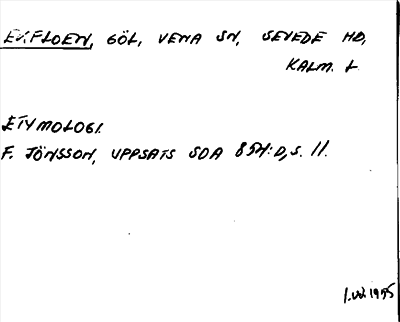 EKFLOEN, GÖL, VENA SN, SEVEDE HD,
KALM. L.
ETYMOLOGI.
F. JÖNSSON, UPPSATS SOA 854:D, S. 11.
1955